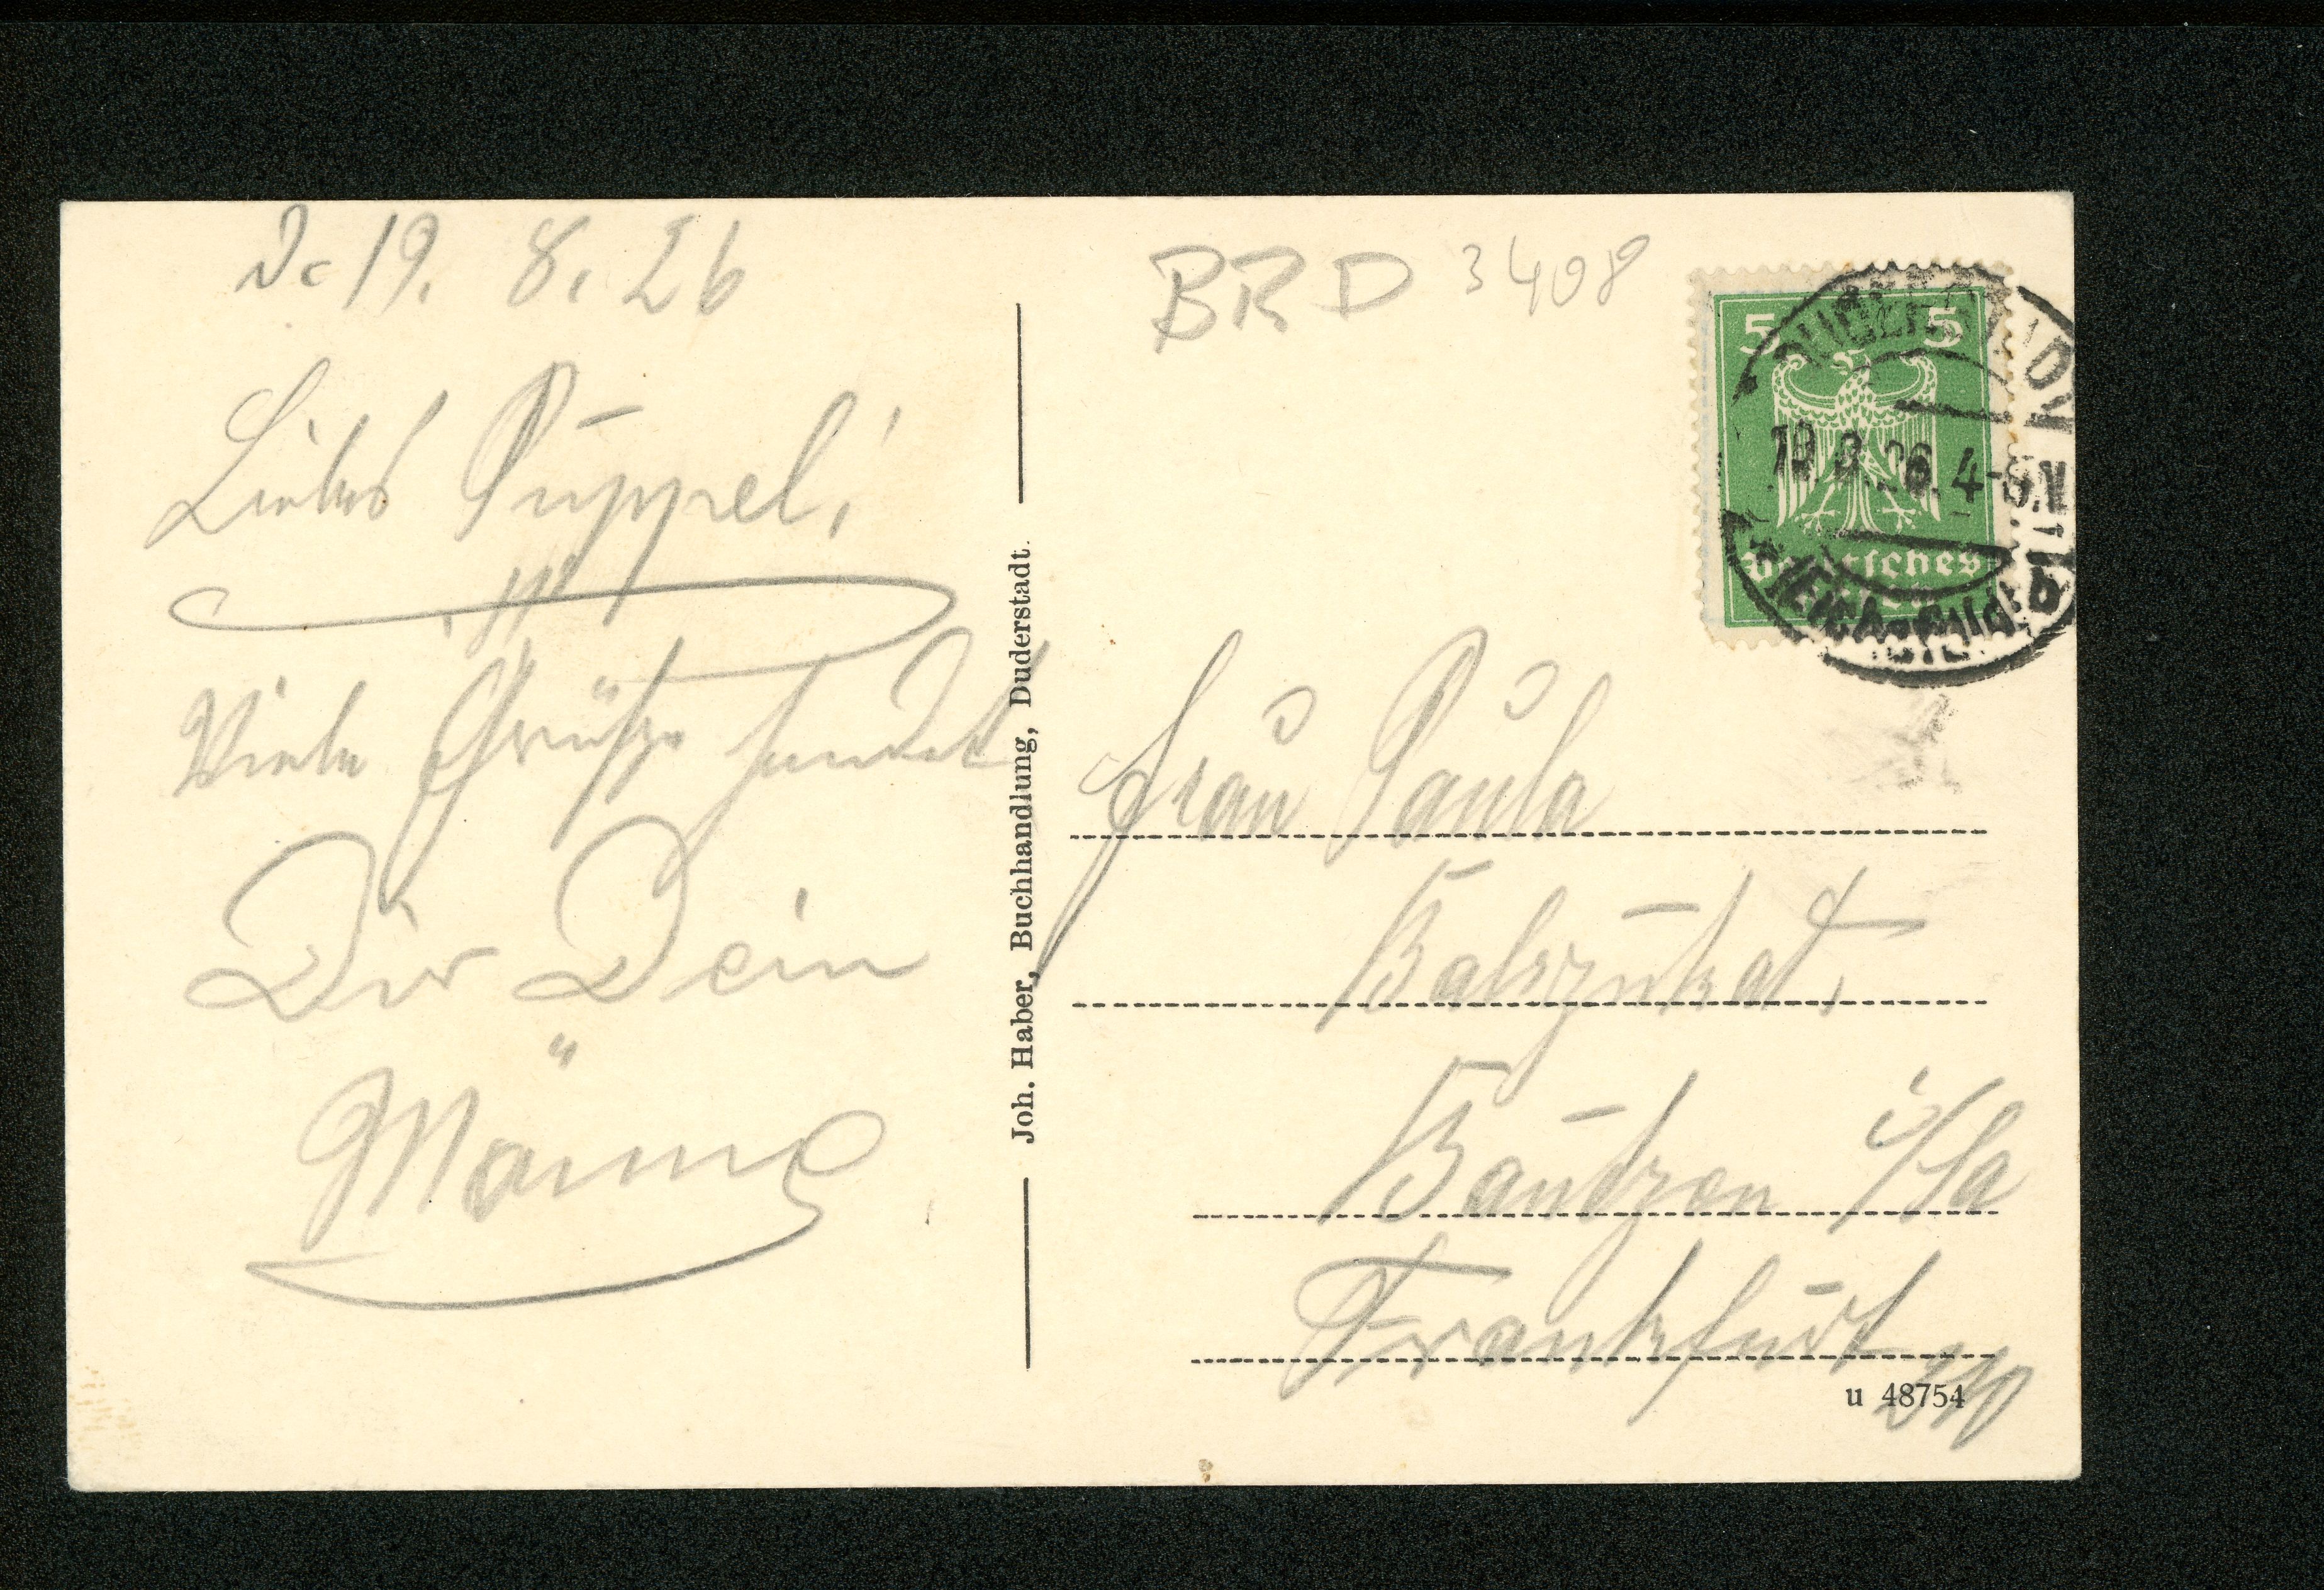 D. 19. 8. 26
Liebes Puppel!
Viele Grüße sendet
Dir Dein
Männe
Joh. Haber, Buchhandlung, Duderstadt.
BRD 3408
5 5
Deutsches
DUDERSTADT
19.8.26. 4-5 N
(EICHSFELD) b
Frau Paula
Bautzen i/Sa
Frankfurt
u 48754